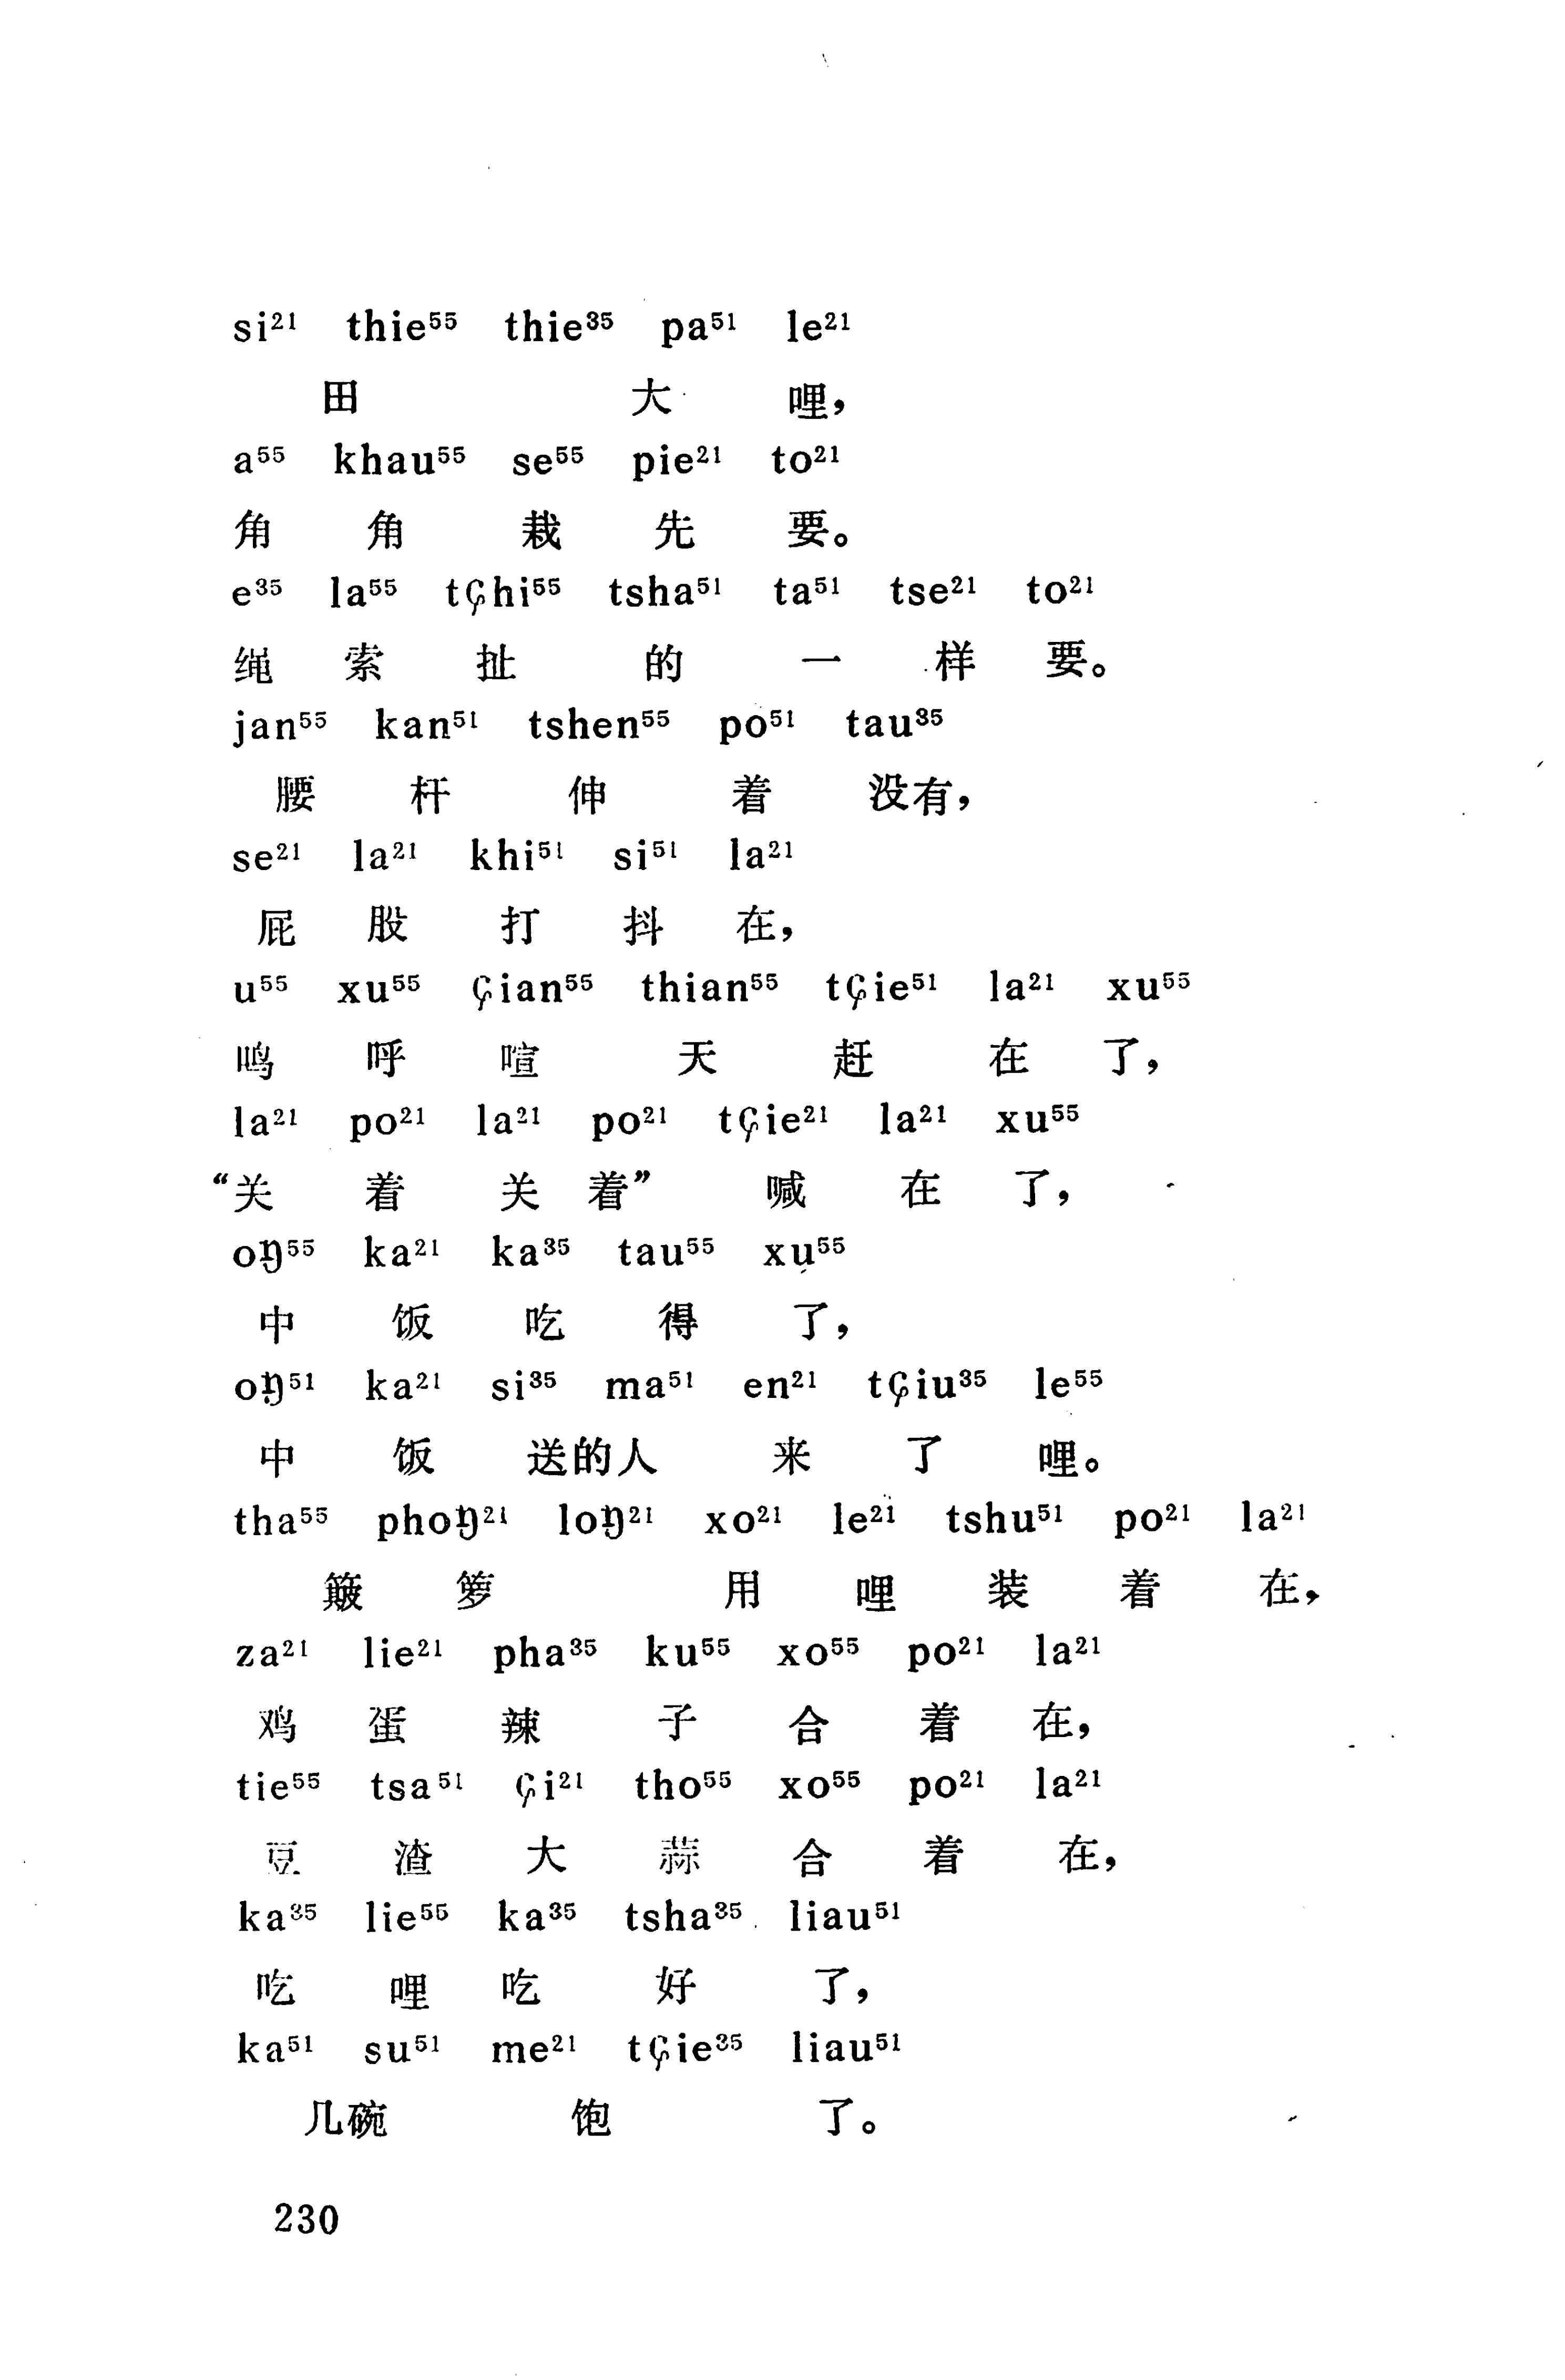 si²¹ thie⁵⁵ thie³⁵ pa⁵¹ le²¹
田 大 哩，
a⁵⁵ khau⁵⁵ se⁵⁵ pie²¹ to²¹
角 角 栽 先 要。
e³⁵ la⁵⁵ tɕhi⁵⁵ tsha⁵¹ ta⁵¹ tse²¹ to²¹
绳 索 扯 的 一 样 要。
jan⁵⁵ kan⁵¹ tshen⁵⁵ po⁵¹ tau³⁵
腰 杆 伸 着 没有，
se²¹ la²¹ khi⁵¹ si⁵¹ la²¹
屁 股 打 抖 在，
u⁵⁵ xu⁵⁵ ɕian⁵⁵ thian⁵⁵ tɕie⁵¹ la²¹ xu⁵⁵
呜 呼 喧 天 赶 在 了，
la²¹ po²¹ la²¹ po²¹ tɕie²¹ la²¹ xu⁵⁵
“关 着 关 着” 喊 在 了，
oŋ⁵⁵ ka²¹ ka³⁵ tau⁵⁵ xu⁵⁵
中 饭 吃 得 了，
oŋ⁵¹ ka²¹ si³⁵ ma⁵¹ en²¹ tɕiu³⁵ le⁵⁵
中 饭 送的人 来 了 哩。
tha⁵⁵ phoŋ²¹ loŋ²¹ xo²¹ le²¹ tshu⁵¹ po²¹ la²¹
簸 箩 用 哩 装 着 在，
za²¹ lie²¹ pha³⁵ ku⁵⁵ xo⁵⁵ po²¹ la²¹
鸡 蛋 辣 子 合 着 在，
tie⁵⁵ tsa⁵¹ ɕi²¹ tho⁵⁵ xo⁵⁵ po²¹ la²¹
豆 渣 大 蒜 合 着 在，
ka³⁵ lie⁵⁵ ka³⁵ tsha³⁵ liau⁵¹
吃 哩 吃 好 了，
ka⁵¹ su⁵¹ me²¹ tɕie³⁵ liau⁵¹
几碗 饱 了。
230